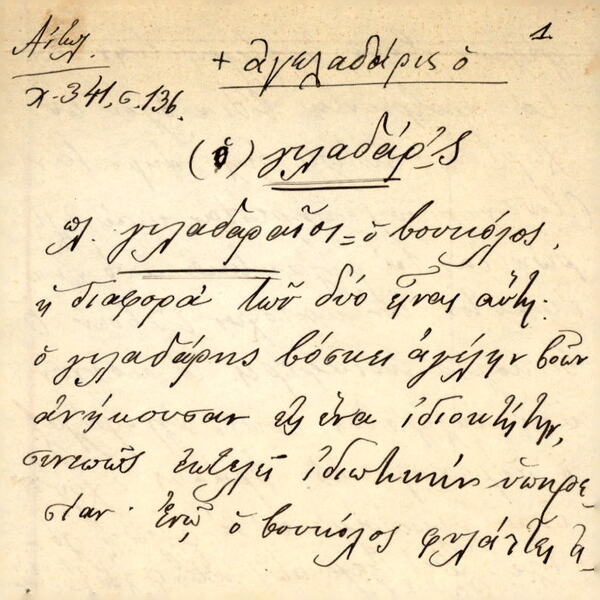 Αἰτωλ. 1
χ. 341, σ. 136.
+ ἀγελαδάρις ὁ
(ὁ) γιλαδάρ'ς
πλ. γιλαδαραῖοι = ὁ βουκόλος,
ἡ διαφορὰ τῶν δύο εἶναι αὕτη·
ὁ γιλαδάρης βόσκει ἀγέλην βοῶν
ἀνήκουσαν εἰς ἕνα ἰδιοκτήτην,
συνεπῶς ἐκτελεῖ ἰδιωτικὴν ὑπηρε-
σίαν. ἐνῷ ὁ βουκόλος φυλάττει τὰ